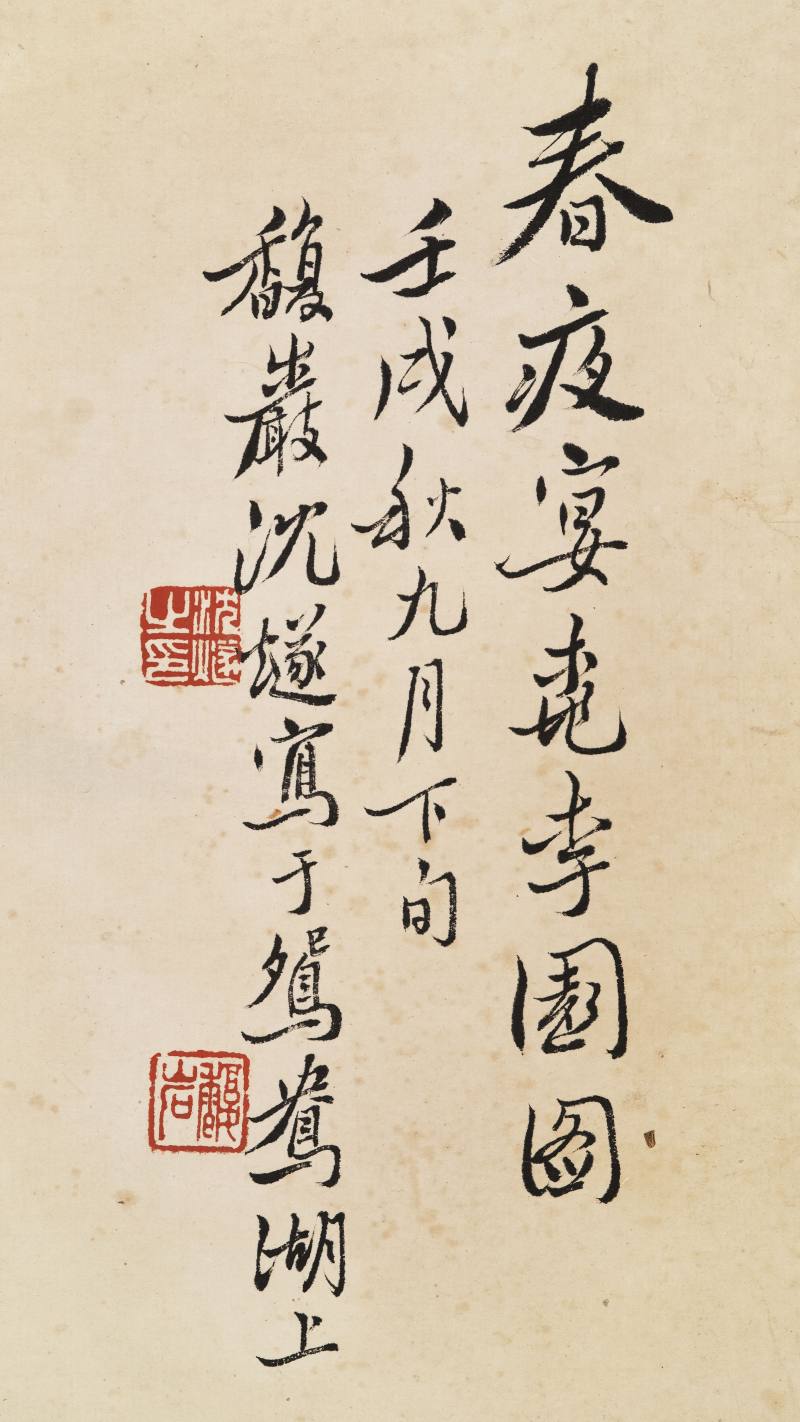 春夜宴桃李園圖
壬戌秋九月下旬
馥巖沈燧寫于鴛鴦湖上
沈燧之印
馥岩